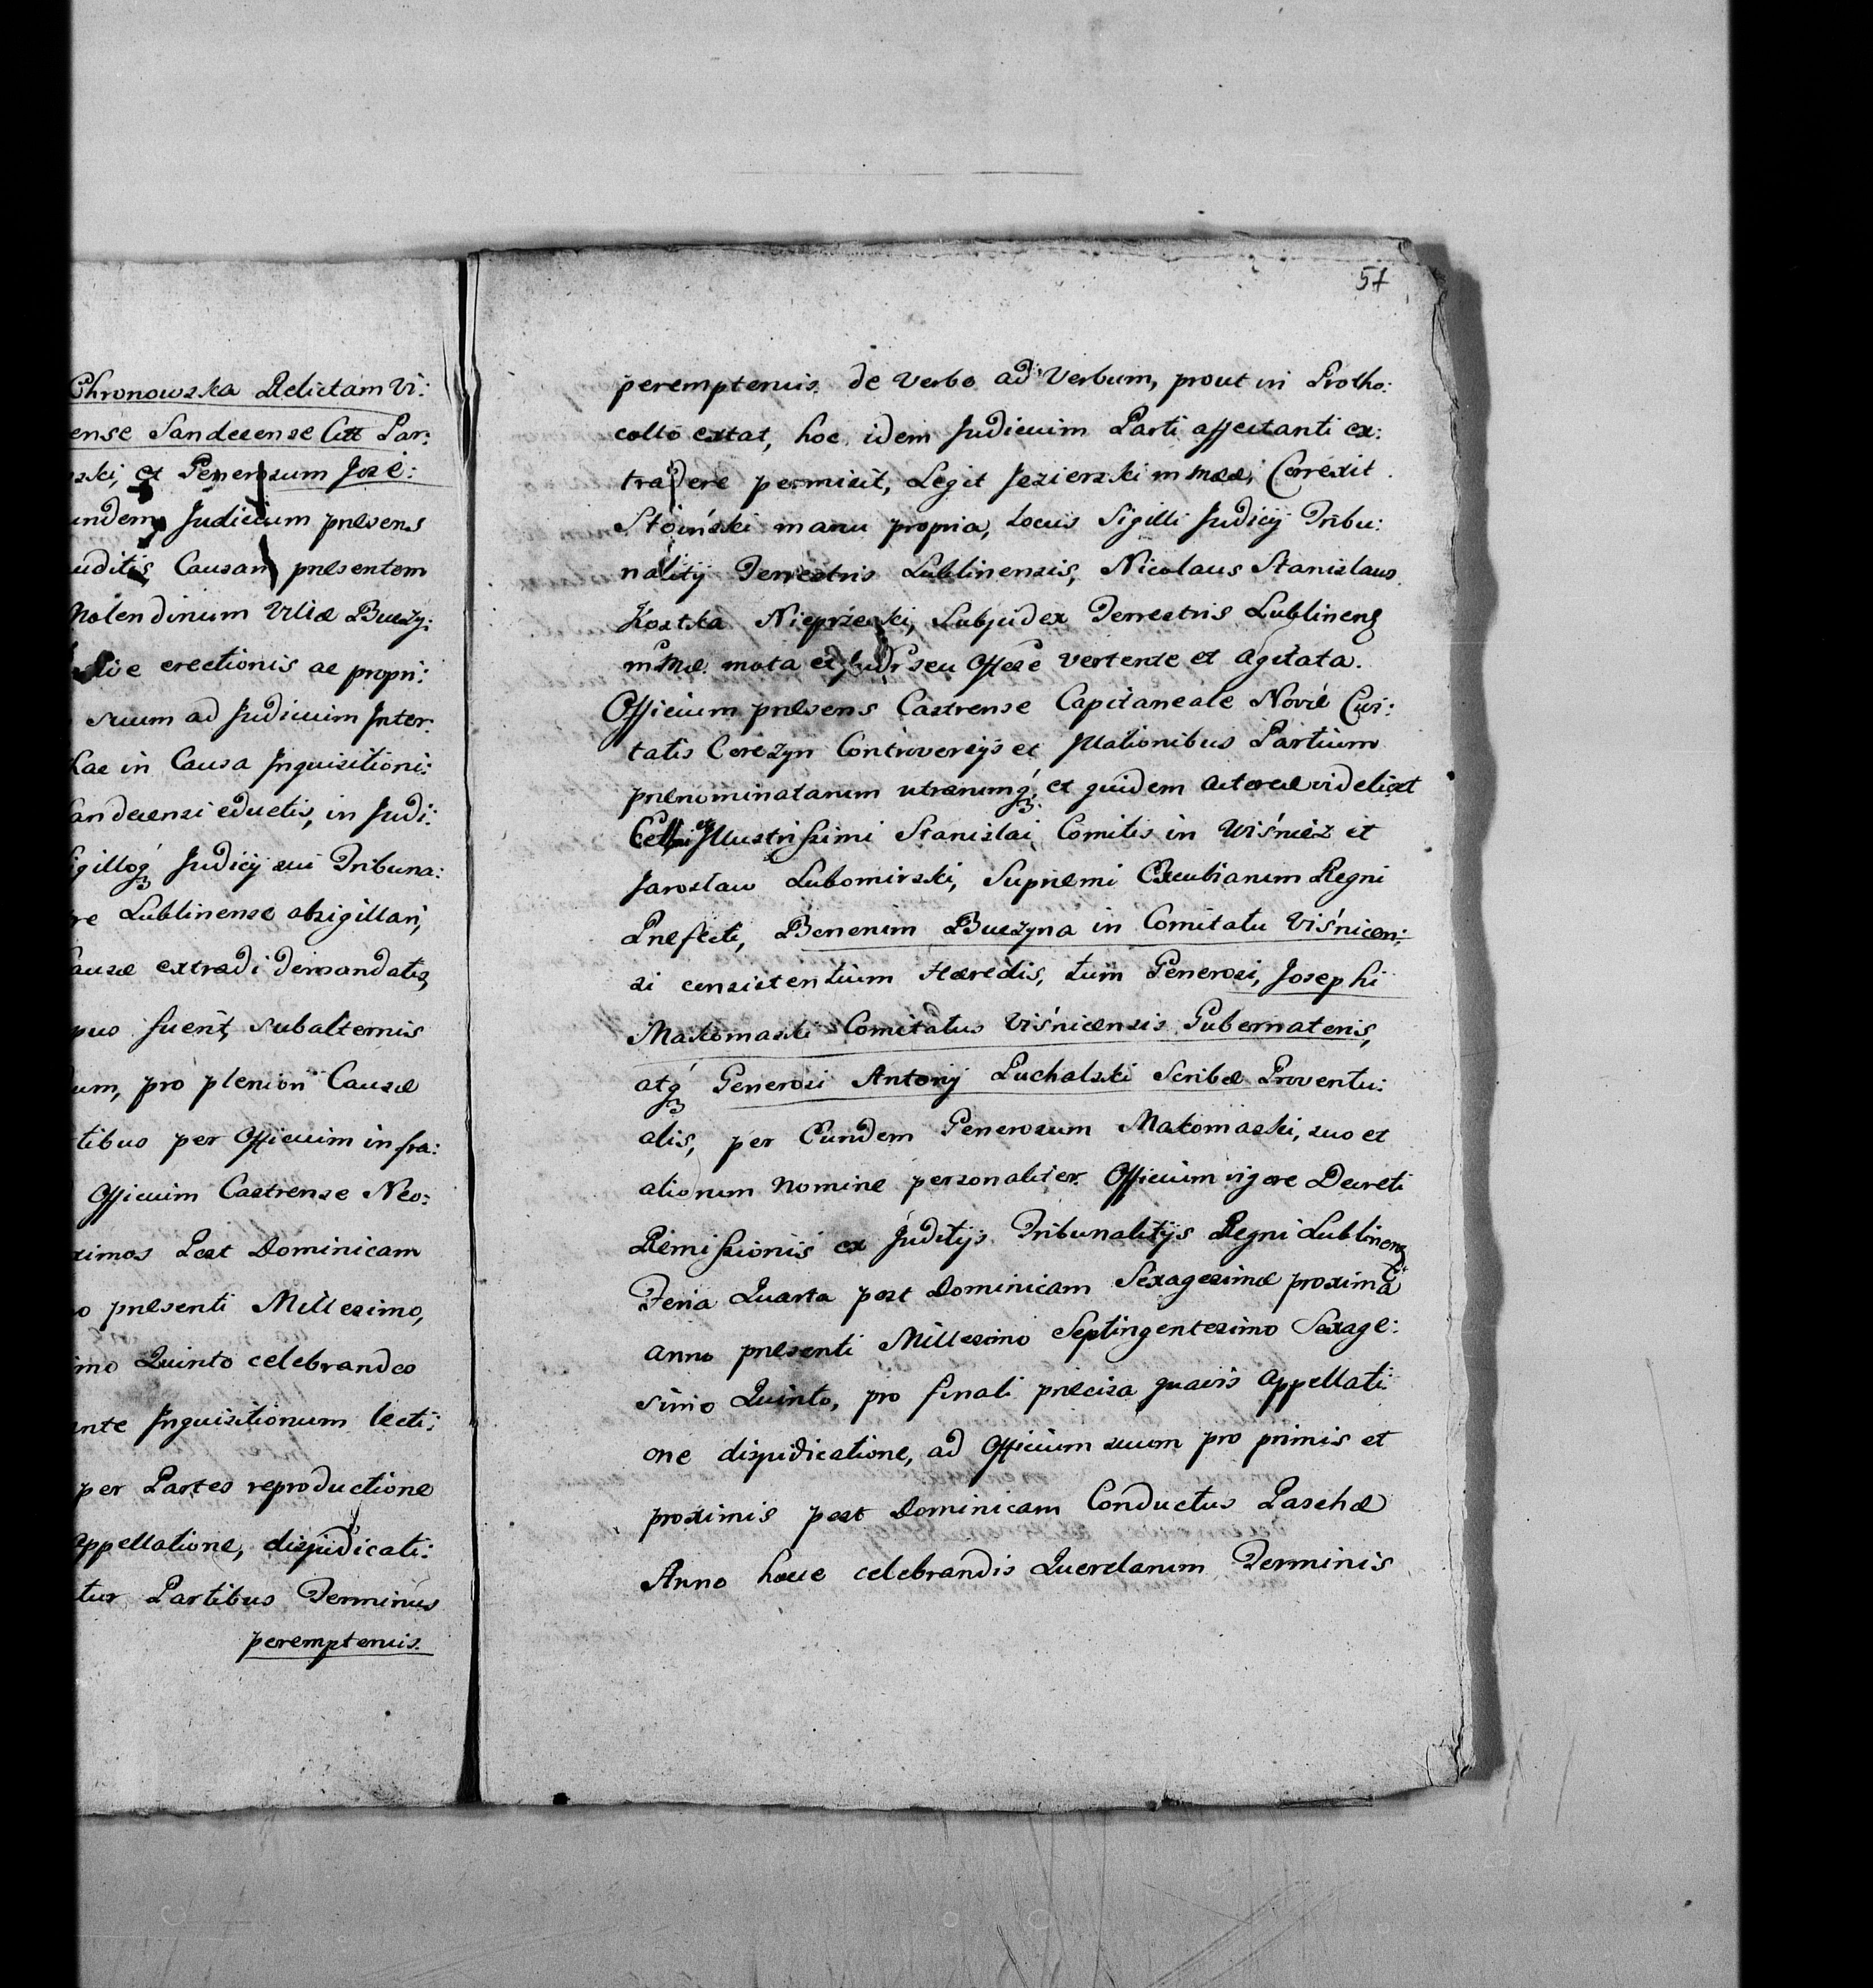 Chronowska Relictam Vi:
ense Sandecense Citt Par:
ski, et Generosum Jose:
undem Judicium præsens
uditis Causam præsentem
Molendinum Villæ Buczy:
sive erectionis ac propri:
suum ad Judicium Inter:
hac in Causa Inquisitioni:
andecensi eductis, in Judi:
igilloq́ Judicÿ sui Tribuna:
re Lublinense obsigillari,
ausæ extradi demandatis,
quo fuerit, subalternis
um, pro pleniori Causæ
tibus per Officium infra:
Officium Castrense Neo:
ximos Post Dominicam
o præsenti Millesimo,
imo Quinto celebrandos
ante Inquisitionum lecti:
per Partes reproductione
appellatione, disjudicati:
tur Partibus Terminus
peremptorius.
57
peremptorius. de Verbo ad Verbum, prout in Protho:
collo extat, hoc idem Judicium Parti affectanti ex:
tradere permisit, Legit Jezierski m Mæc, Correxit
Stoiński manu propria, Locus Sigilli Judicÿ Tribu:
nalitÿ Terrestris Lublinensis, Nicolaus Stanislaus
Kostka Nieprzecki, Subjudex Terrestris Lublinens
mota et seu Offcse vertente et agitata.
Officium præsens Castrense Capitaneale Novæ Civi:
tatis Corczyn Controversÿs et Illationibus Partium
prænominatarum utrarumq́, et quidem actoreæ videlicet
Celsi et Illustrissimi Stanislai Comitis in Wiśnicz et
Jarosław Lubomirski, Supremi Excubiarum Regni
Præfecti, Bonorum Buczyna in Comitatu Viśnicen:
si consistentium Hæredis, tum Generosi, Josephi
Makomaski Comitatus Viśnicensis Gubernatoris,
atq́ Generosi Antonÿ Puchalski Scribæ Proventu:
alis, per Eundem Generosum Makomaski, suo et
aliorum Nomine personaliter Officium vigore Decreti
Remissionis ex Juditÿs Tribunalitÿs Regni Lublinens
Feria Quarta post Dominicam Sexagesimæ proxima
anno præsenti Millesimo Septingentesimo Sexage:
simo Quinto, pro finali præcisa quavis appellati
one disjudicatione, ad Officium suum pro primis et
proximis post Dominicam Conductus Paschæ
Anno hocce celebrandis Querelarum Terminis